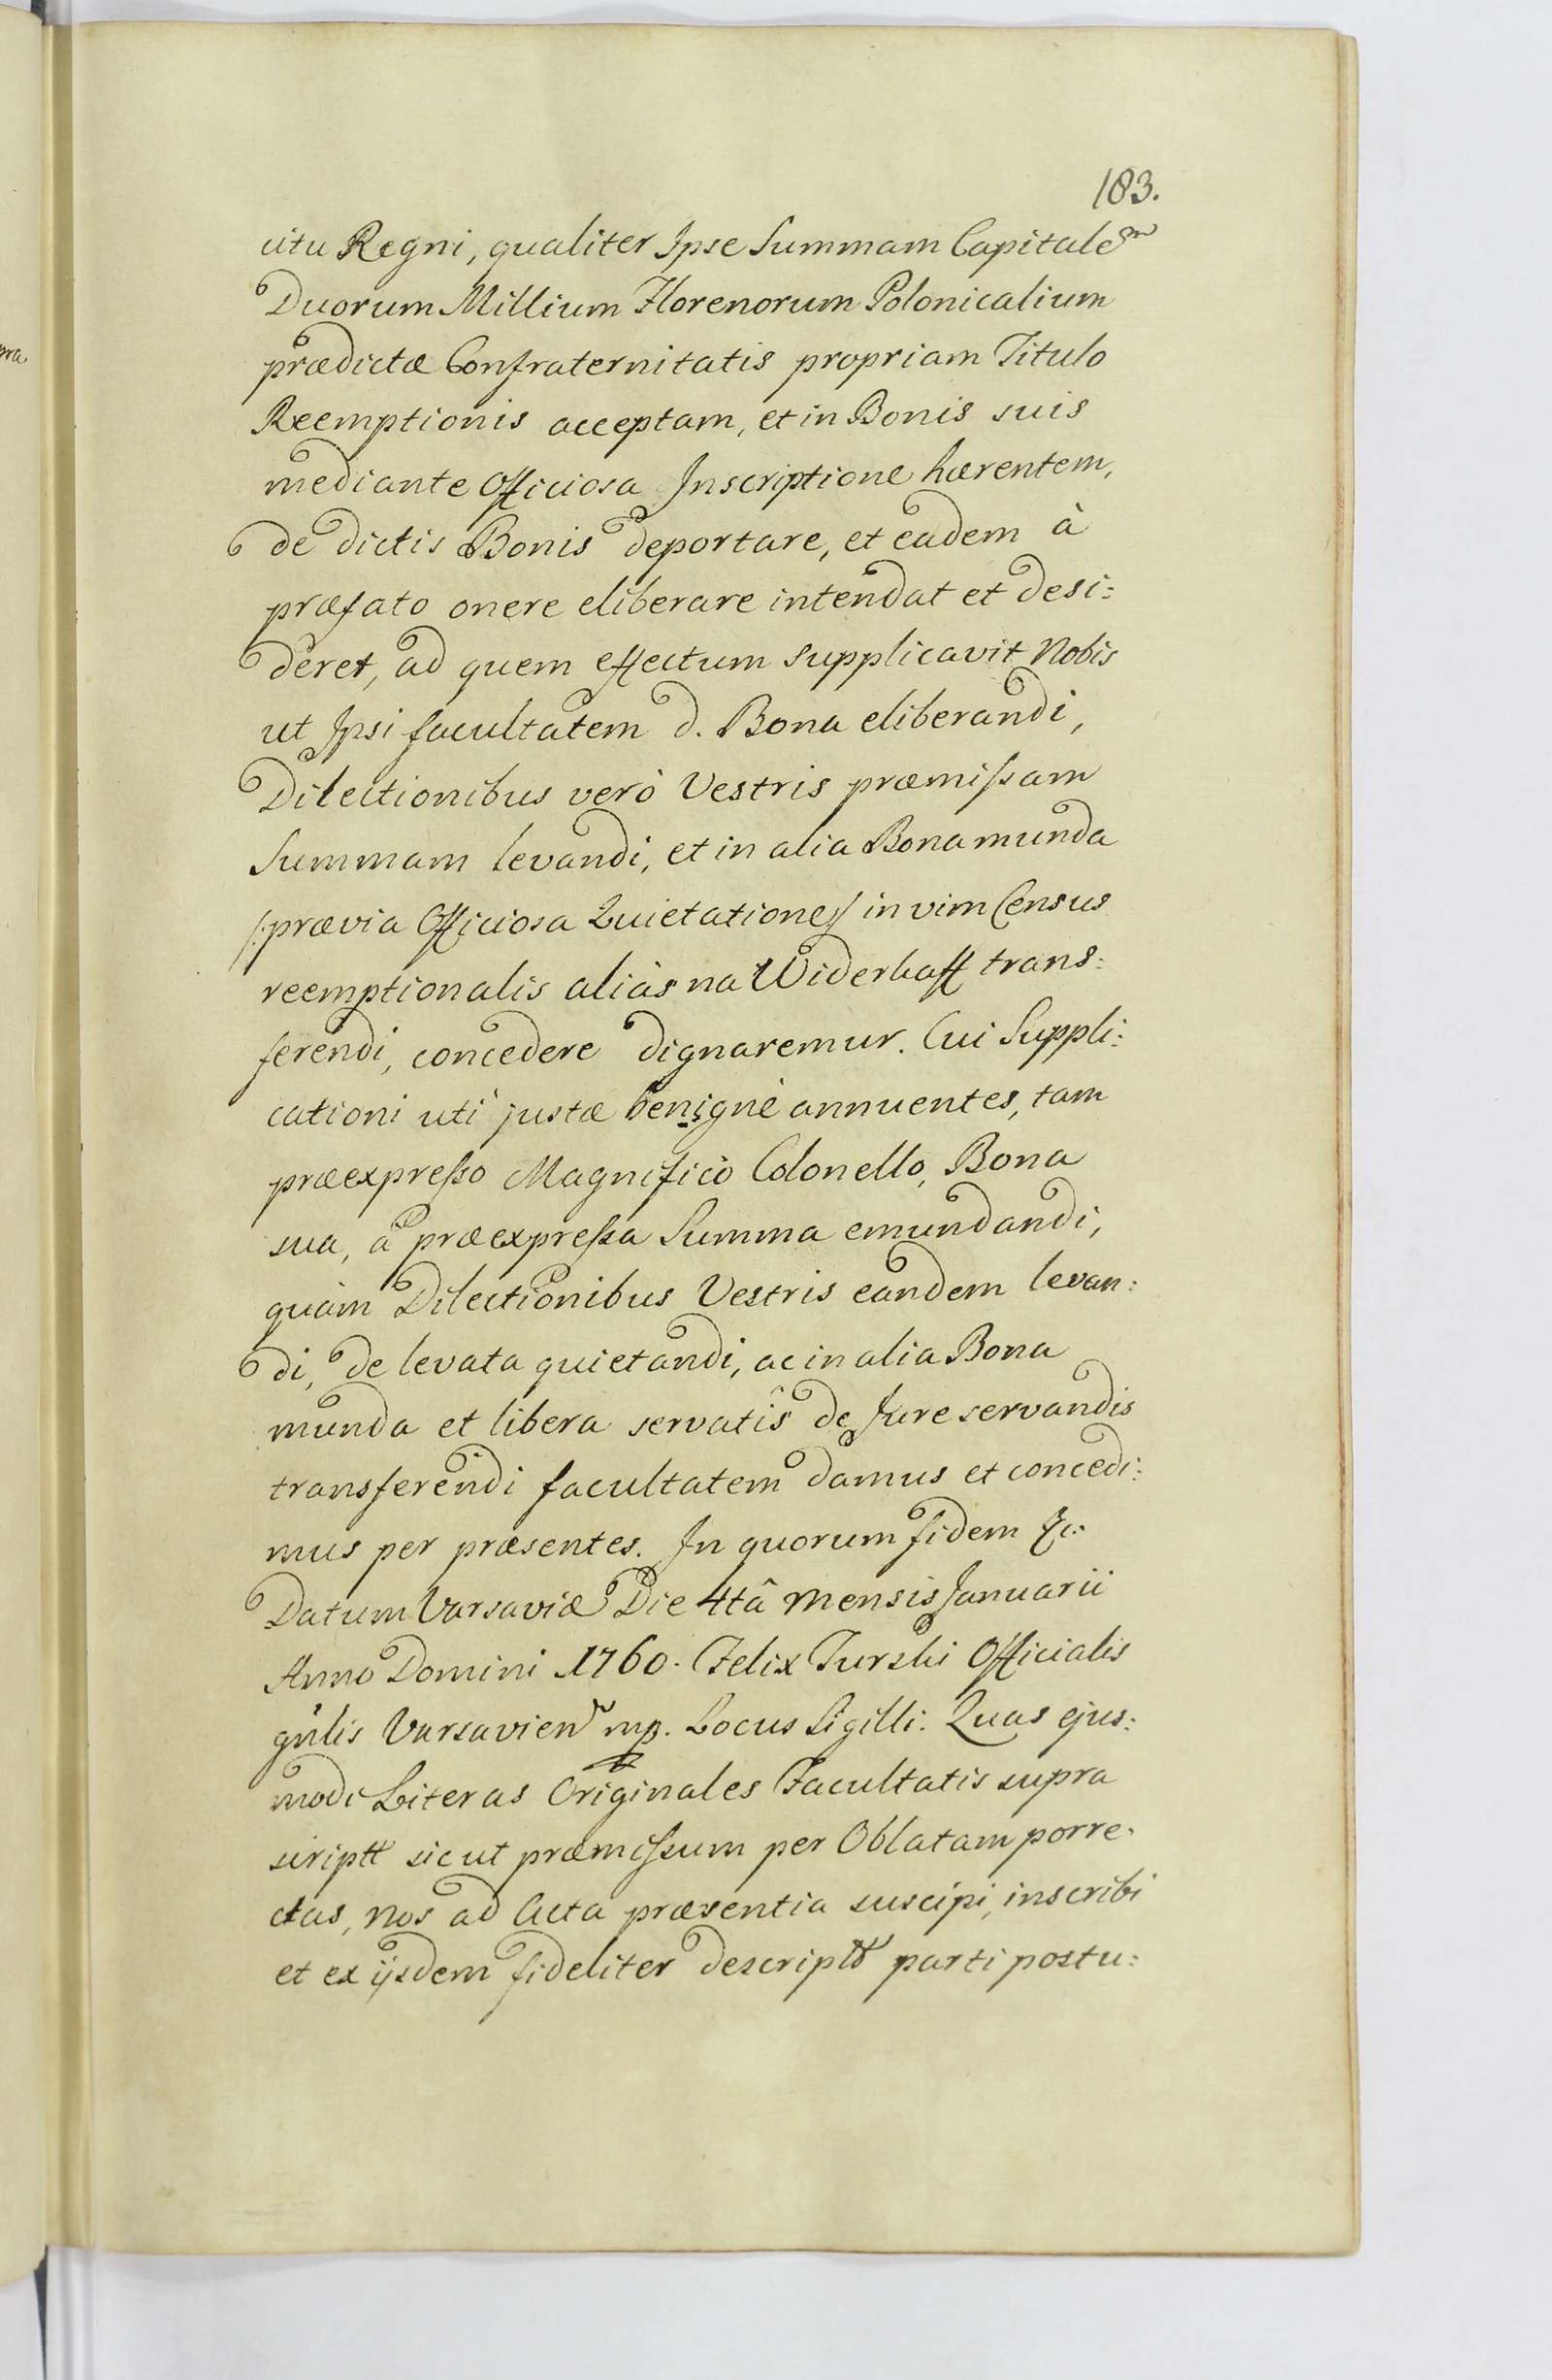 183.
citu Regni, qualiter Ipse Summam Capitalem
Duorum Millium Florenorum Polonicalium
prædictæ Confraternitatis propriam Titulo
Reemptionis acceptam, et in Bonis suis
mediante Officiosa Inscriptione hærentem,
de dictis Bonis deportare, et eadem à
præfato onere eliberare intendat et desi:
deret, ad quem effectum supplicavit Nobis
ut Ipsi facultatem d. Bona eliberandi,
Dilectionibus verò Vestris præmissam
Summam levandi, et in alia Bona munda
/: prævia Officiosa Quietatione :/ in vim Census
reemptionalis aliàs na Widerkaff trans:
ferendi, concedere dignaremur. Cui Suppli:
cationi uti justæ benignè annuentes, tam
præexpresso Magnifico Colonello, Bona
sua, à præexpressa Summa emundandi,
quàm Dilectionibus Vestris eandem levan:
di, de levata quietandi, ac in alia Bona
munda et libera servatîs de Jure servandis
transferendi facultatem damus et concedi:
mus per præsentes. In quorum fidem &c:
Datum Varsaviæ Die 4tâ Mensis Januarii
Anno Domini 1760. Felix Turski Officialis
gnlis Varsavien mp. Locus Sigilli. Quas ejus:
modi Literas Originales Facultatis supra
scriptt sicut præmissum per Oblatam porre:
ctas, Nos ad Acta præsentia suscipi, inscribi
et ex ijsdem fideliter descriptt parti postu: